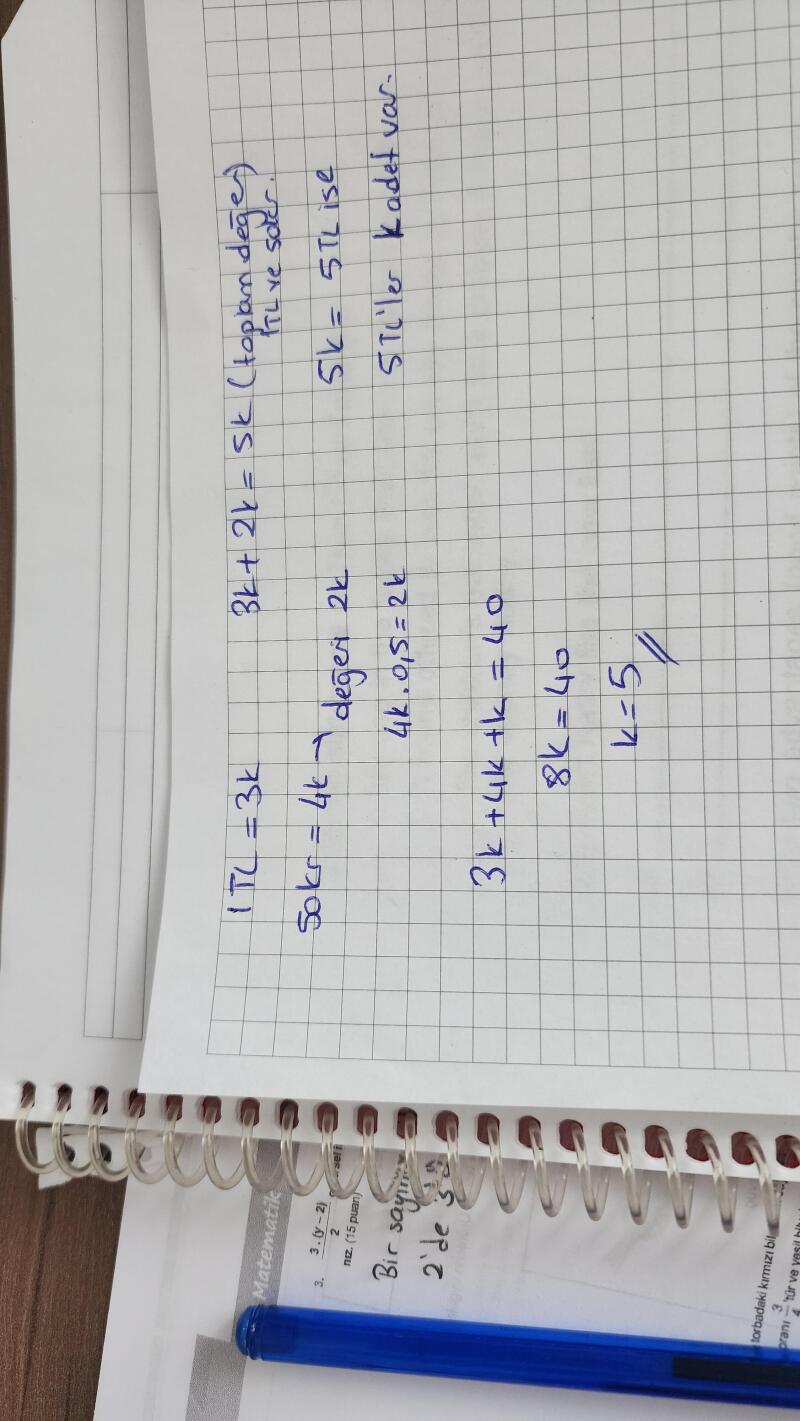 1 TL = 3k
3k + 2k = 5k (toplam değer)
1TL ve
50kr = 4k → değeri 2k
5k = 5TL ise
4k . 0,5 = 2k
5TL'ler k adet var.
3k + 4k + k = 40
8k = 40
k = 5
Matematik
3. 3 . (y – 2)
2
nız. (15 puan)
Bir
2'de
torbadaki kırmızı
3
'tür ve yeşil